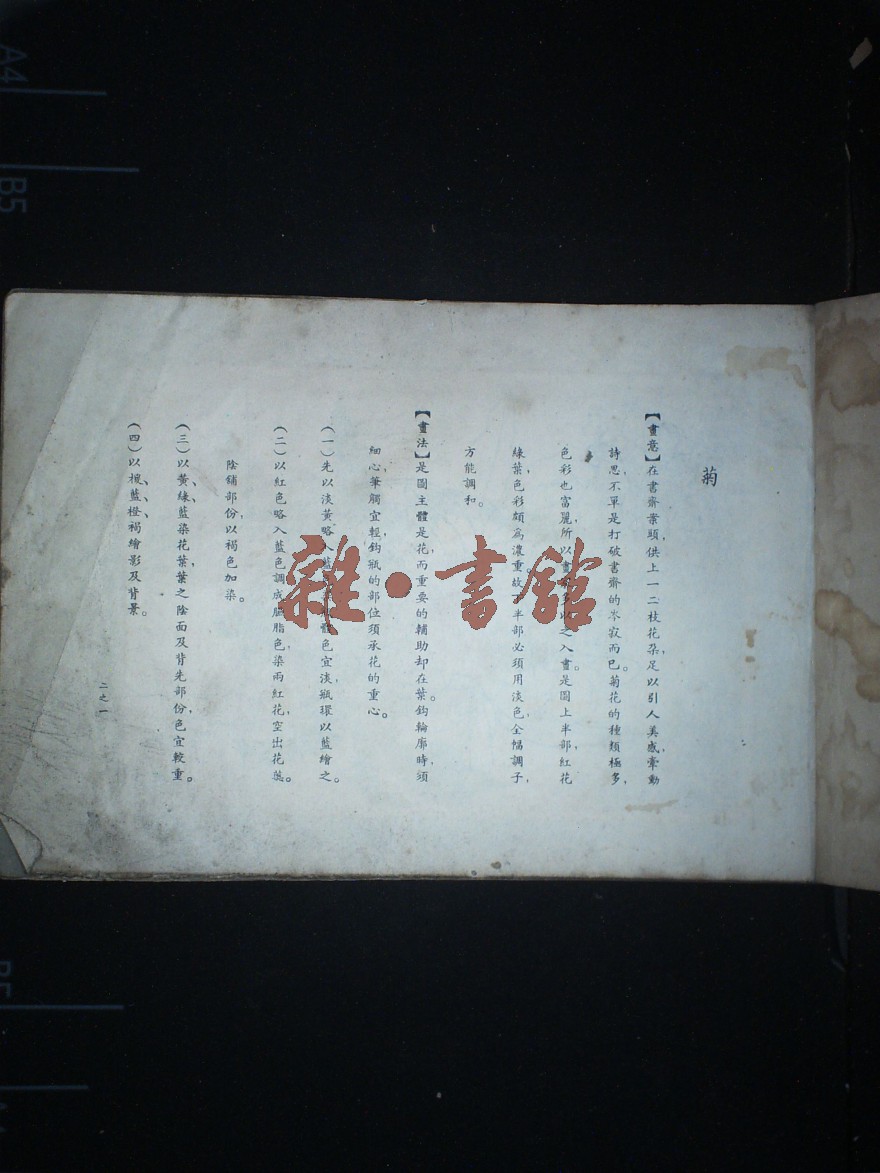 菊
【畫意】在書齋案頭，供上一二枝花朶，足以引人美感，牽動
詩思，不單是打破書齋的岑寂而已。菊花的種類極多，
色彩也富麗，所以畫多以之入畫。是圖上半部紅花
綠葉，色彩頗爲濃重，故下半部必須用淡色，全幅調子，
方能調和。
【畫法】是圖主體是花，而重要的輔助却在葉。鈎輪廓時須
細心，筆觸宜輕，鈎瓶的部位須承花的重心。
（一）先以淡黃略入藍色宜淡，瓶環以藍繪之。
（二）以紅色略入藍色調成胭脂色，染兩紅花，空出花蕊。
陰鋪部份，以褐色加染。
（三）以黃、綠、藍染花葉，葉之陰面及背先部份，色宜較重。
（四）以藍、橙、褐繪影及背景。
二之一
雜·書館
A4
B5
B5